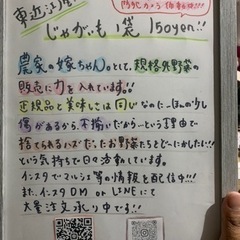 東近江産
防犯カメラ
じゃがいも 1袋 150yen!!
農家の嫁ちゃん。として、規格外野菜の
販売に力を入れています。
正規品と美味しさは同じなのに…ほんの少し
傷があるから、不揃いだから…という理由で
捨てられるハズだったお野菜たちをどーにかしたい!!!
という気持ちで日々活動しています。
インスタでマルシェ等の情報を配信中!!!
また、インスタDM or LINEにて
大量注文承り中です!!